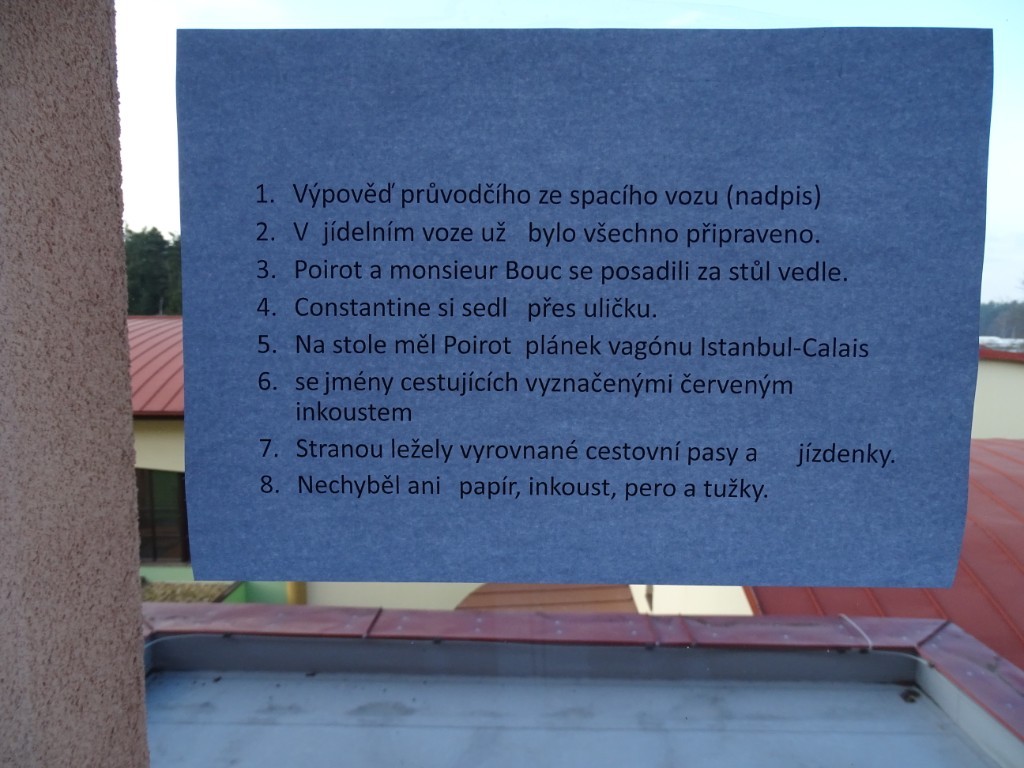 1. Výpověď průvodčího ze spacího vozu (nadpis)
2. V jídelním voze už bylo všechno připraveno.
3. Poirot a monsieur Bouc se posadili za stůl vedle.
4. Constantine si sedl přes uličku.
5. Na stole měl Poirot plánek vagónu Istanbul-Calais
6. se jmény cestujících vyznačenými červeným
inkoustem
7. Stranou ležely vyrovnané cestovní pasy a jízdenky.
8. Nechyběl ani papír, inkoust, pero a tužky.